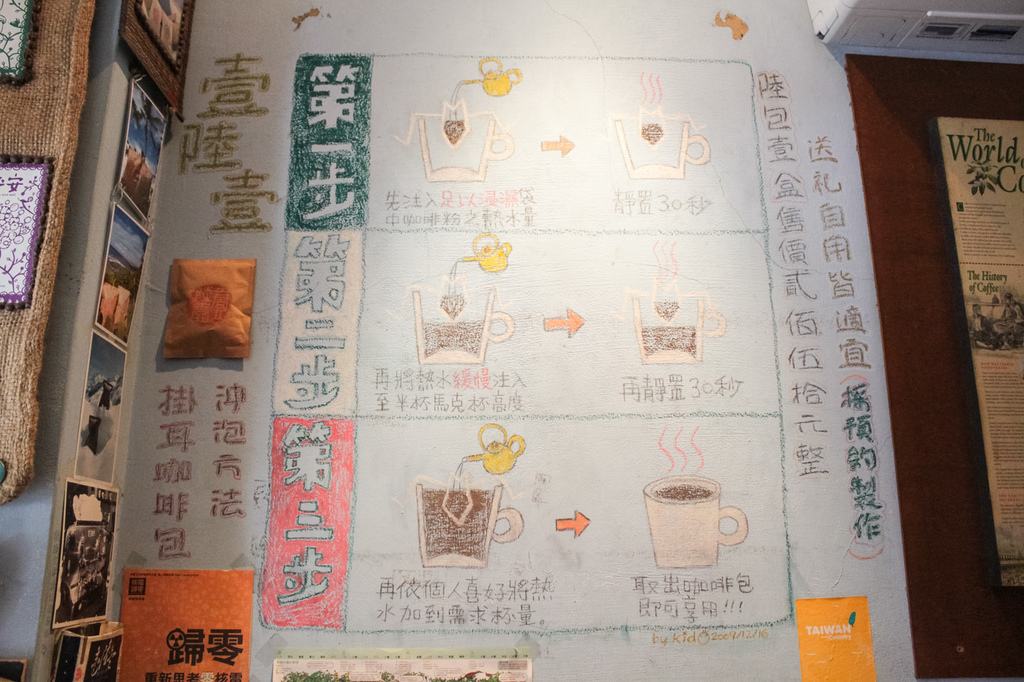 壹陸壹
掛耳咖啡包
沖泡方法
第一步
先注入足以濕潤袋
中咖啡粉之熱水量
靜置30秒
第二步
再將熱水緩慢注入
至半杯馬克杯高度
再靜置30秒
第三步
再依個人喜好將熱
水加到需求杯量。
取出咖啡包
即可享用!!!
by Kid 2009/12/16
陸包壹盒售價貳佰伍拾元整
送礼自用皆適宜(採預約製作)
The
World
Co
The History
of Coffee
安
歸零
重新思考 核電
TAIWAN